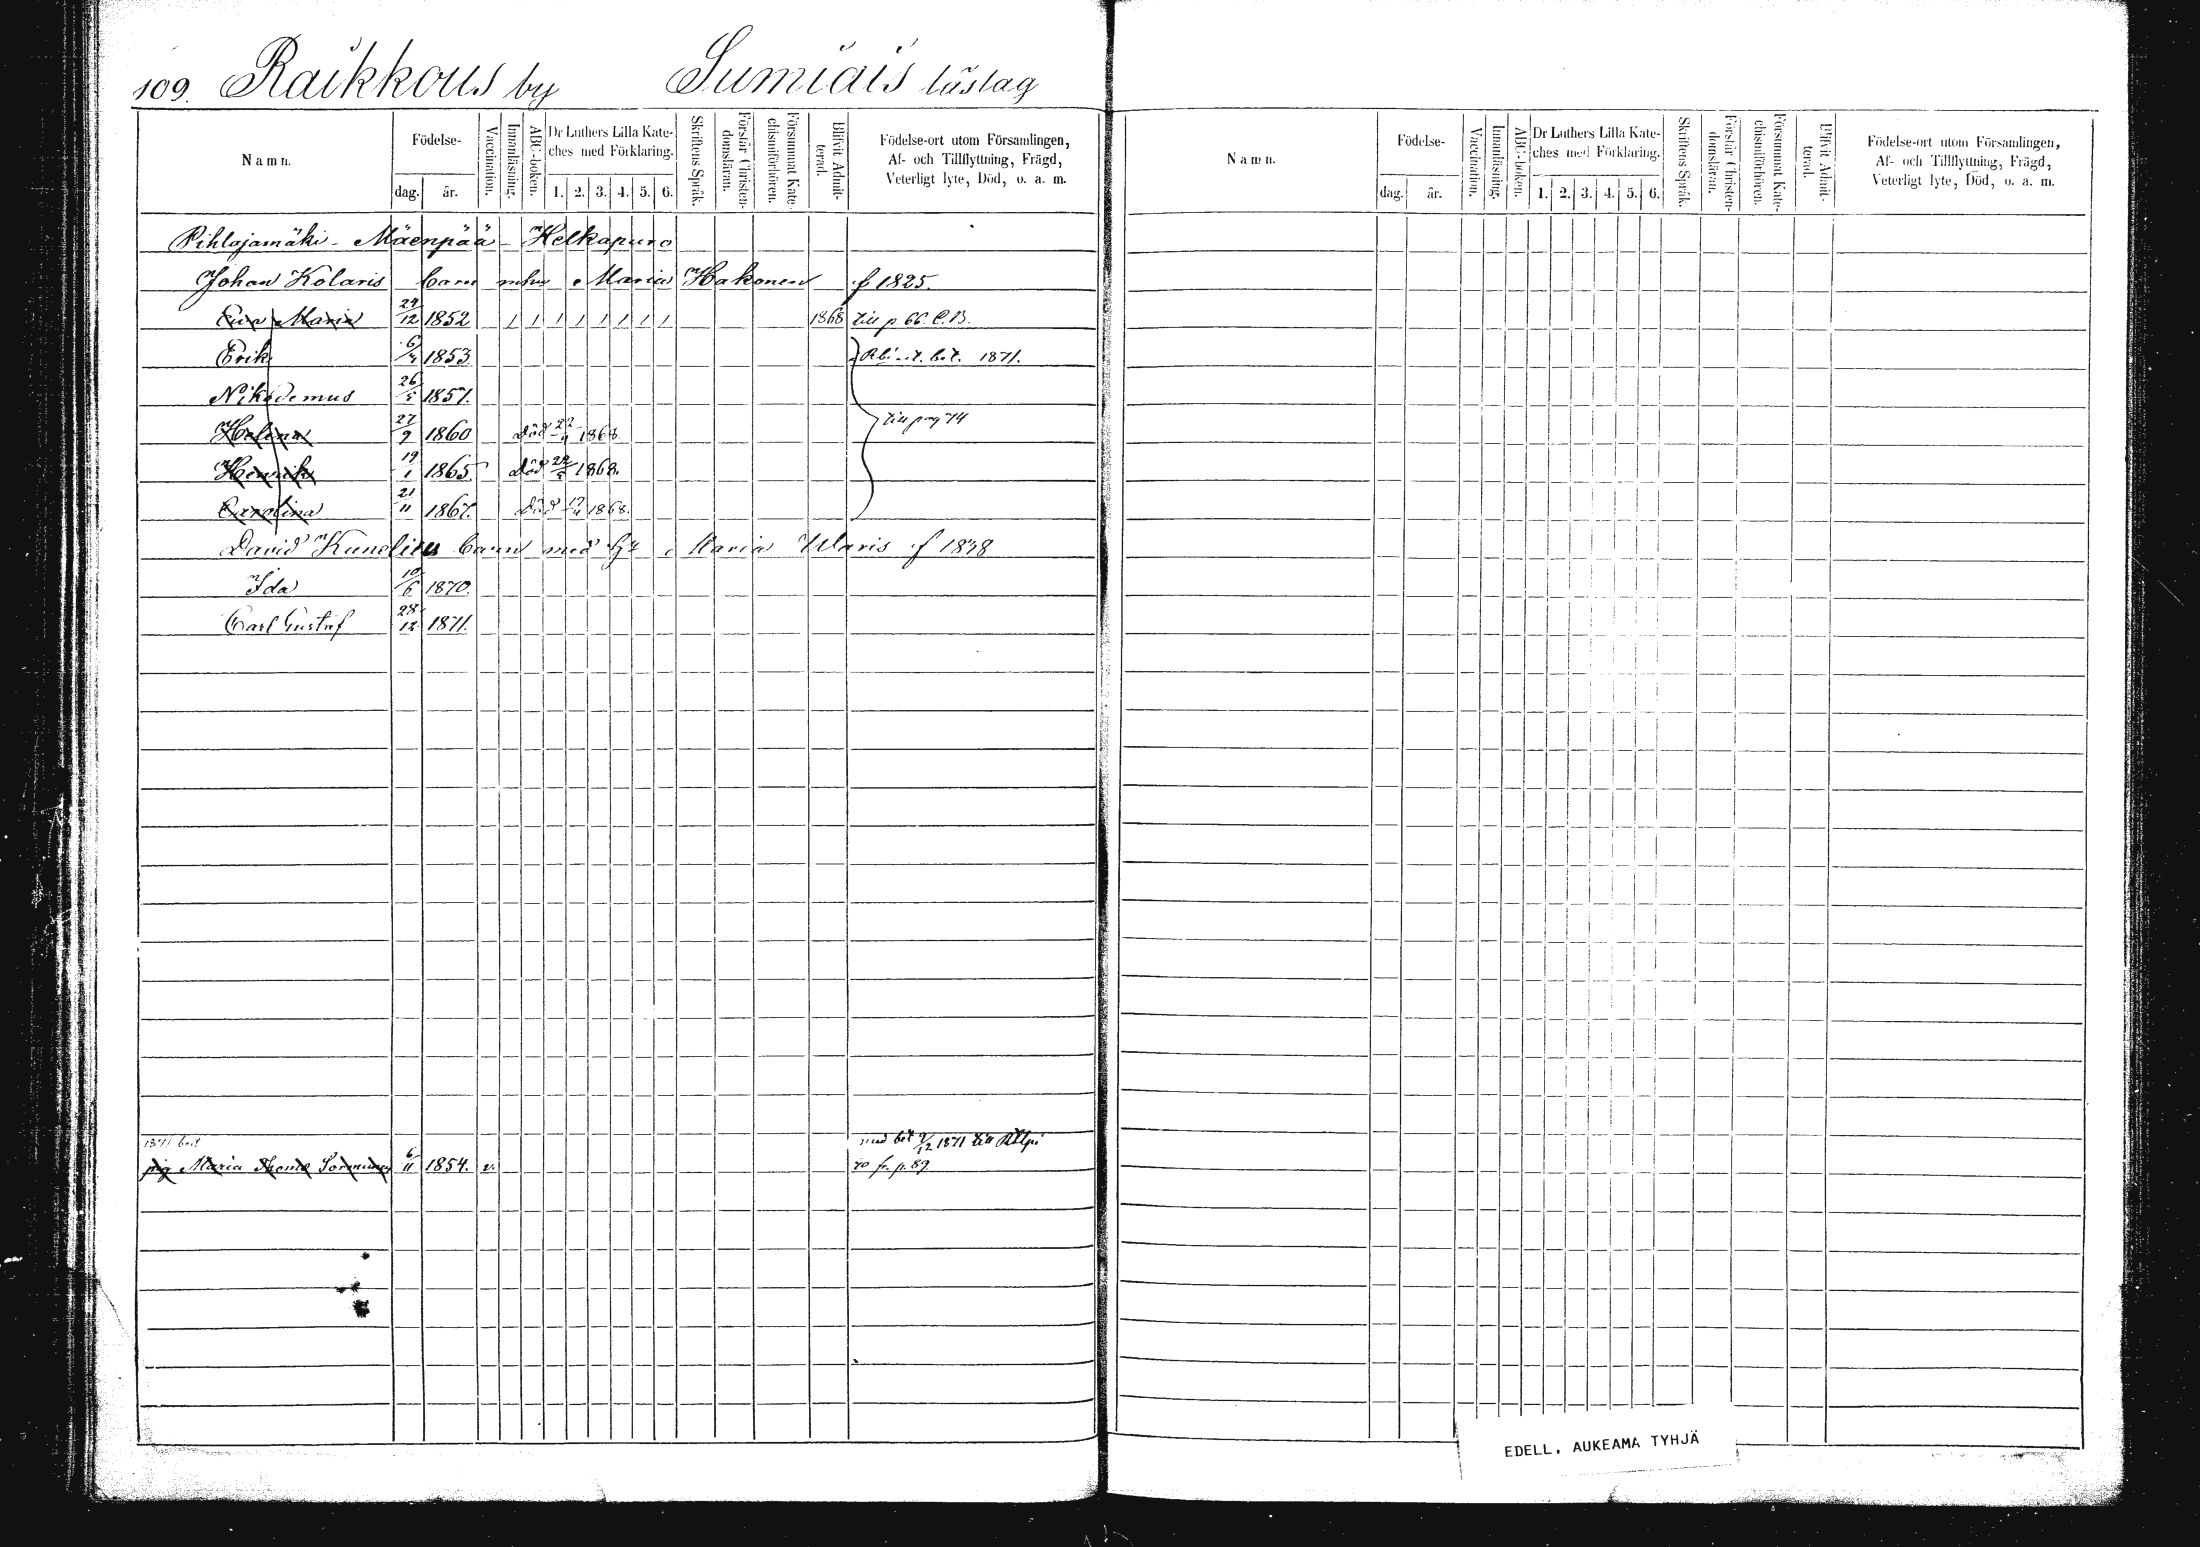 109. Raikkous by Sumiais läslag
Namn. Födelse- dag. år. Vaccination. Innanläsning. ABC-boken. Dr Luthers Lilla Kateches med Förklaring. 1. 2. 3. 4. 5. 6. Skriftens Språk. Förstår Christendomsläran. Försummat Katechismiförhören. Blifvit Admitterad. Födelse-ort utom Församlingen, Af- och Tillflyttning, Frägd, Veterligt lyte, Död, o. a. m.
Pihlajamäki - Mäenpää - Helkapuro
Johan Kolaris barn mhu Maria Hakonen f 1825.
Eva Maria 24/12 1852 1 1 1 1 1 1 1 1 1868 till p 66. C.B.
Erik 1853. 1871.
Nikodemus 26/5 1857.
Helena 27/9 1860 Död 1868. till pag 74
Henrik 19/1 1865 Död 1868.
Carolina 21/11 1867. Död 1868.
David Kunelius barn med Maria Ularis f 1848
Ida 10/6 1870.
Carl Gustaf 28/12 1871.
1871 bet med bet 1871 till
pig Maria Sorminen 6/11 1854. v. fr. p. 89.
Namn. Födelse- dag. år. Vaccination. Innanläsning. ABC-boken. Dr Luthers Lilla Kateches med Förklaring. 1. 2. 3. 4. 5. 6. Skriftens Språk. Förstår Christendomsläran. Försummat Katechismiförhören. Blifvit Admitterad. Födelse-ort utom Församlingen, Af- och Tillflyttning, Frägd, Veterligt lyte, Död, o. a. m.
EDELL. AUKEAMA TYHJÄ